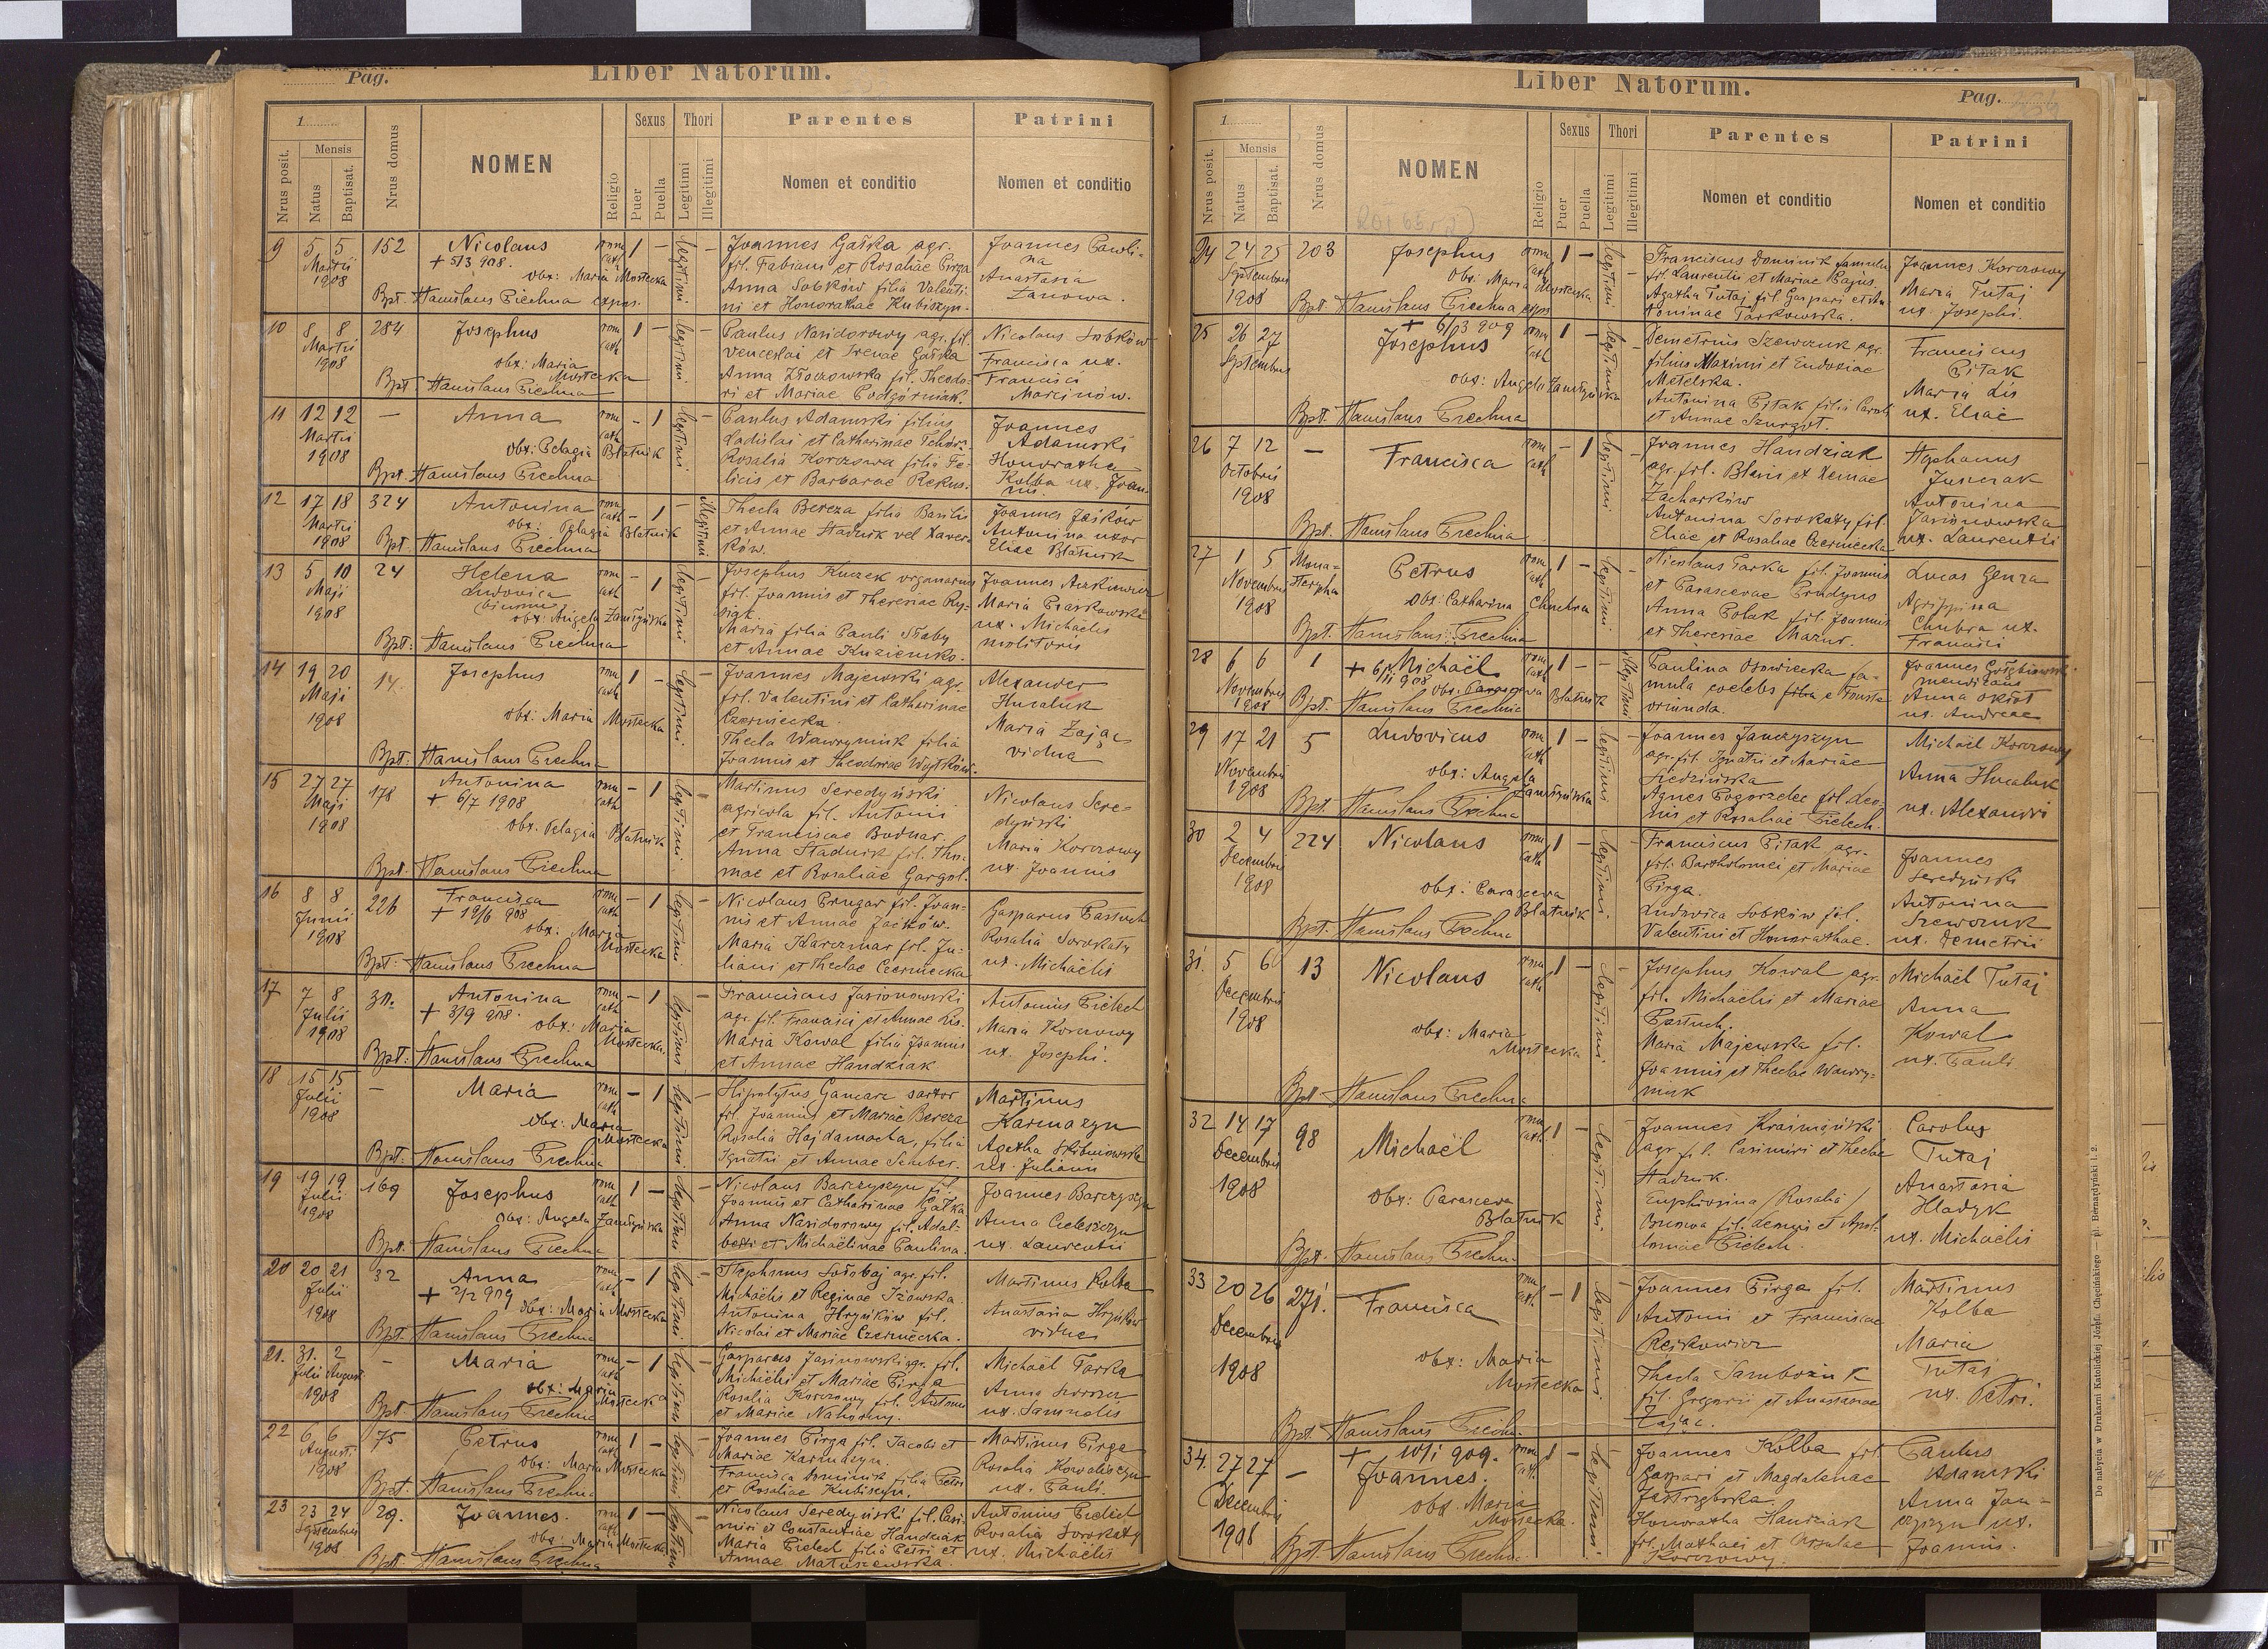 Pag.
Liber Natorum.
1
Nrus posit.
Mensis
Natus
Baptisat.
Nrus domus
NOMEN
Religio
Sexus
Puer
Puella
Thori
Legitimi
Illegitimi
Parentes
Nomen et conditio
Patrini
Nomen et conditio
9 5 5 152 Nicolaus rom. 1 – legitimi –
Martii + 5/3 908. cath
1908 obx: Maria Mostecka
Bpt. Stanislaus Piechna expos.
Joannes Gałka agr.
fil. Fabiani et Rosaliae Pirga
Anna Sobków filia Valenti-
ni et Honorathae Kubiszyn.
Joannes Pawli-
na
Anastasia
Zanowa.
10 8 8 284 Josephus rom. 1 – legitimi
Martii cath
1908 obx: Maria
Mostecka
Bpt. Stanislaus Piechna
Paulus Nasidorowy agr. fil.
Venceslai et Irenae Gałka
Anna Złoczowska fil. Theodo-
ri et Mariae Podgórniak.
Nicolaus Sobków
Francisca ux.
Francisci
Marcinów.
11 12 12 – Anna rom. – 1 legitimi
Martii cath
1908 obx: Pelagia Blatnik
Bpt. Stanislaus Piechna
Paulus Adamski filius
Ladislai et Catharinae
Rosalia Korczowa filia Fe-
licis et Barbarae Rekus.
Joannes
Adamski
Honoratha
Kolba ux. Joan-
nis.
12 17 18 324 Antonina rom. – 1 – illegitimi
Martii cath
1908 obx: Pelagia Blatnik
Bpt. Stanislaus Piechna
Thecla Bereza filia Basilii
et Annae Stadnik vel Xaver-
ków.
Joannes Jaśków
Antonina uxor
Eliae Blatnik
13 5 10 24 Helena rom. – 1 legitimi –
Maji Ludovica cath
1908 binom.
obx: Angela Zamłyńska
Bpt: Stanislaus Piechna
Josephus Kuczek organarius
fil. Joannis et Theresiae Ry-
siak.
Maria filia Pauli Słaby
et Annae Kuziemsko.
Joannes
Maria Piaskowska
ux. Michaelis
molitoris
14 19 20 14. Josephus rom. 1 – legitimi –
Maji cath
1908 obx: Maria Mostecka
Bpt: Stanislaus Piechna
Joannes Majewski agr.
fil. Valentini et Catharinae
Czerniecka.
Thecla Wawryniuk filia
Joannis et Theodorae Wojtków.
Alexander
Hucaluk
Maria Zając
vidua
15 27 27 178 Antonina rom. – 1 legitimi –
Maji + 6/7 1908 cath
1908 obx. Pelagia Blatnik
Bpt. Stanislaus Piechna
Martinus Seredyński
agricola fil. Antonii
et Franciscae Bodnar.
Anna Stadnik fil. Tho-
mae et Rosaliae Gargol.
Nicolaus Sere-
dyński
Maria Korczowy
ux. Joannis
16 8 8 226 Francisca rom. – 1 legitimi –
Junii + 19/6 908 cath
1908 obx: Maria
Mostecka
Bpt: Stanislaus Piechna
Nicolaus Prugar fil. Joan-
nis et Annae Jacków.
Maria Karczmar fil. Ju-
liani et Theclae Czerniecka
Gasparus Pastuch
Rosalia Sorokaty
ux. Michaëlis
17 7 8 30. Antonina rom. – 1 legitimi –
Julii + 3/9 908. cath
1908 obx: Maria
Mostecka.
Bpt: Stanislaus Piechna
Franciscus Jasionowski
agr. fil. Francisci et Annae Lis.
Maria Kowal filia Joannis
et Annae Handziak
Antonius Pielech
Maria Korczowy
ux. Josephi.
18 15 15 – Maria rom. – 1 legitimi –
Julii cath
1908 obx: Maria
Mostecka
Bpt: Stanislaus Piechna
Hipolytus Gancarz sartor
fil. Joannis et Mariae Bereza
Rosalia Hajdamacha, filia
Ignatii et Annae Sember.
Martinus
Karmazyn
Agatha
ux. Juliani
19 19 19 169 Josephus rom. 1 – legitimi –
Julii cath
1908 obx: Angela Zamłyńska
Bpt. Stanislaus Piechna
Nicolaus Barczyszyn fil.
Joannis et Catharinae Gałka
Anna Nasidorowy fil. Adal-
berti et Michaëlinae Paulina.
Joannes Barczyszyn
Anna Cieleszczyn
ux. Laurentii
20 20 21 32 Anna rom. – 1 legitimi –
Julii + 2/2 909 cath
1908 obx: Maria Mostecka
Bpt. Stanislaus Piechna
Stephanus Sołobaj agr. fil.
Michaelis et Reginae Iżowska.
Antonina Hryńków fil.
Nicolai et Mariae Czerniecka.
Martinus Kolba
Anastasia Hryńków
vidua
21. 31. 2 – Maria rom. – 1 legitimi –
Julii Augusti cath
1908 obx: Maria
Mostecka
Bpt. Stanislaus Piechna
Gasparus Jasinowski agr. fil.
Michaelis et Mariae Pirga
Rosalia Korczowy fil. Antonii
et Mariae Nahorny.
Michaël Tarka
Anna
ux. Samuelis
22 6 6 75 Petrus rom. 1 – legitimi –
Augusti cath
1908 obx: Maria Mostecka
Bpt. Stanislaus Piechna
Joannes Pirga fil. Jacobi et
Mariae Karmazyn.
Francisca Dominik filia Petri
et Rosaliae Kubiszyn.
Martinus Pirga
Rosalia Kowaliszyn
ux. Pauli.
23 23 24 29. Joannes. rom. 1 – legitimi –
Septembris cath
1908 obx: Maria Mostecka
Bpt. Stanislaus Piechna
Nicolaus Seredyński fil. Casi-
miri et Constantiae Handziak
Maria Pielech filia Petri et
Annae Matuszewska.
Antonius Pielech
Rosalia Sorokaty
ux. Michaëlis
Liber Natorum.
Pag.
1
Nrus posit.
Mensis
Natus
Baptisat.
Nrus domus
NOMEN
Religio
Sexus
Puer
Puella
Thori
Legitimi
Illegitimi
Parentes
Nomen et conditio
Patrini
Nomen et conditio
24 24 25 203 Josephus rom. 1 – legitimi –
Septembris cath
1908 obx. Maria Mostecka
Bpt. Stanislaus Piechna expos
Franciscus Dominik famulus
fil. Laurentii et Mariae Pająs.
Agatha Tutaj fil. Gaspari et An-
toninae Tarkowska.
Joannes Korczowy
Maria Tutaj
ux. Josephi.
25 26 27 + 6/03 909 rom. 1 – legitimi –
Septembris Josephus cath
obx: Angela Zamłyńska
Bpt. Stanislaus Piechna
Demetrius Szewczuk agr.
filius Maximi et Eudoxiae
Metelska.
Antonina Pitak filia Caroli
et Annae Szurgot.
Franciscus
Pitak
Maria Lis
ux. Eliae
26 7 12 – Francisca rom. – 1 legitimi
Octobris cath
1908
Bpt. Stanislaus Piechna
Joannes Handziak
agr. fil. Blasii et Xeniae
Zacharków
Antonina Sorokaty fil.
Eliae et Rosaliae Czerniecka
Stephanus
Antonina
Jasionowska
ux. Laurentii
27 1 5 Mona- Petrus rom. 1 – legitimi –
Novembris sterzycha cath
1908 obx: Catharina Chubra
Bpt. Stanislaus Piechna
Nicolaus Tarka fil. Joannis
et Parascevae Prudyus
Anna Polak fil. Joannis
et Theresiae Mazur.
Lucas Genza
Agrippina
Chubra ux.
Francisci
28 6 6 1 + 6/11 908 Michaël rom. 1 – illegitimi
Novembris cath
1908 obx. Parasceva Blatnik
Bpt. Stanislaus Piechna
Paulina Osowiecka fa-
mula coelebs filia e Touste
oriunda.
Joannes Gołębiowski
mendicans
Anna Okłot
ux. Andreae
29 17 21 5 Ludovicus rom. 1 – legitimi
Novembris cath
1908 obx: Angela
Zamłyńska
Bpt. Stanislaus Piechna
Joannes Janczyszyn
agr. fil. Ignatii et Mariae
Siedzińska
Agnes Pogorzelec fil. Leo-
nis et Rosaliae Pielech.
Michaël Korczowy
Anna Hucaluk
ux. Alexandri
30 2 4 224 Nicolaus rom. 1 – legitimi
Decembris cath
1908 obx: Parasceva
Blatnik
Bpt. Stanislaus Piechna
Franciscus Pitak agr.
fil. Bartholomei et Mariae
Pirga.
Ludovica Sobków fil.
Valentini et Honorathae.
Joannes
Seredyński
Antonina
Szewczuk
ux. Demetrii
31. 5 6 13 Nicolaus rom. 1 – legitimi
Decembris cath
1908 obx: Maria
Mostecka
Bpt. Stanislaus Piechna
Josephus Kowal agr.
fil. Michaëlis et Mariae
Pastuch.
Maria Majewska fil.
Joannis et Theclae Wawry-
niuk
Michaël Tutaj
Anna
Kowal
ux. Pauli
32 14 17 98 Michaël rom. 1 – legitimi
Decembris cath
1908 obx: Parasceva
Blatnik
Bpt. Stanislaus Piechna
Joannes Kraśmiński
agr. fil. Casimiri et Theclae
Stadnik.
Euphrosina /Rosalia/
fil. Dionysii et Apol-
loniae Pielech.
Carolus
Tutaj
Anastasia
Hladyk
ux. Michaëlis
33 20 26 271. Francisca rom. – 1 legitimi –
Decembris cath
1908 obx: Maria
Mostecka
Bpt. Stanislaus Piechna
Joannes Pirga fil.
Antonii et Franciscae
Rejkowicz
Thecla Samborzuk
fil. Gregorii et Anastasiae
Zając.
Martinus
Kolba
Maria
Tutaj
ux. Petri.
34. 27 27 – + 10/1 909. rom. 1 – legitimi
Decembris Joannes. cath.
1908 obx. Maria
Mostecka.
Bpt. Stanislaus Piechna
Joannes Kolba fil.
Gaspari et Magdalenae
Jastrzębska.
Honoratha Handziak
fil. Mathaei et Ursulae
Korczowy.
Paulus
Adamski
Anna Jan-
czyszyn ux.
Joannis.
Do nabycia w Drukarni Katolickiej Józefa Chęcińskiego — pl. Bernardyński l. 2.